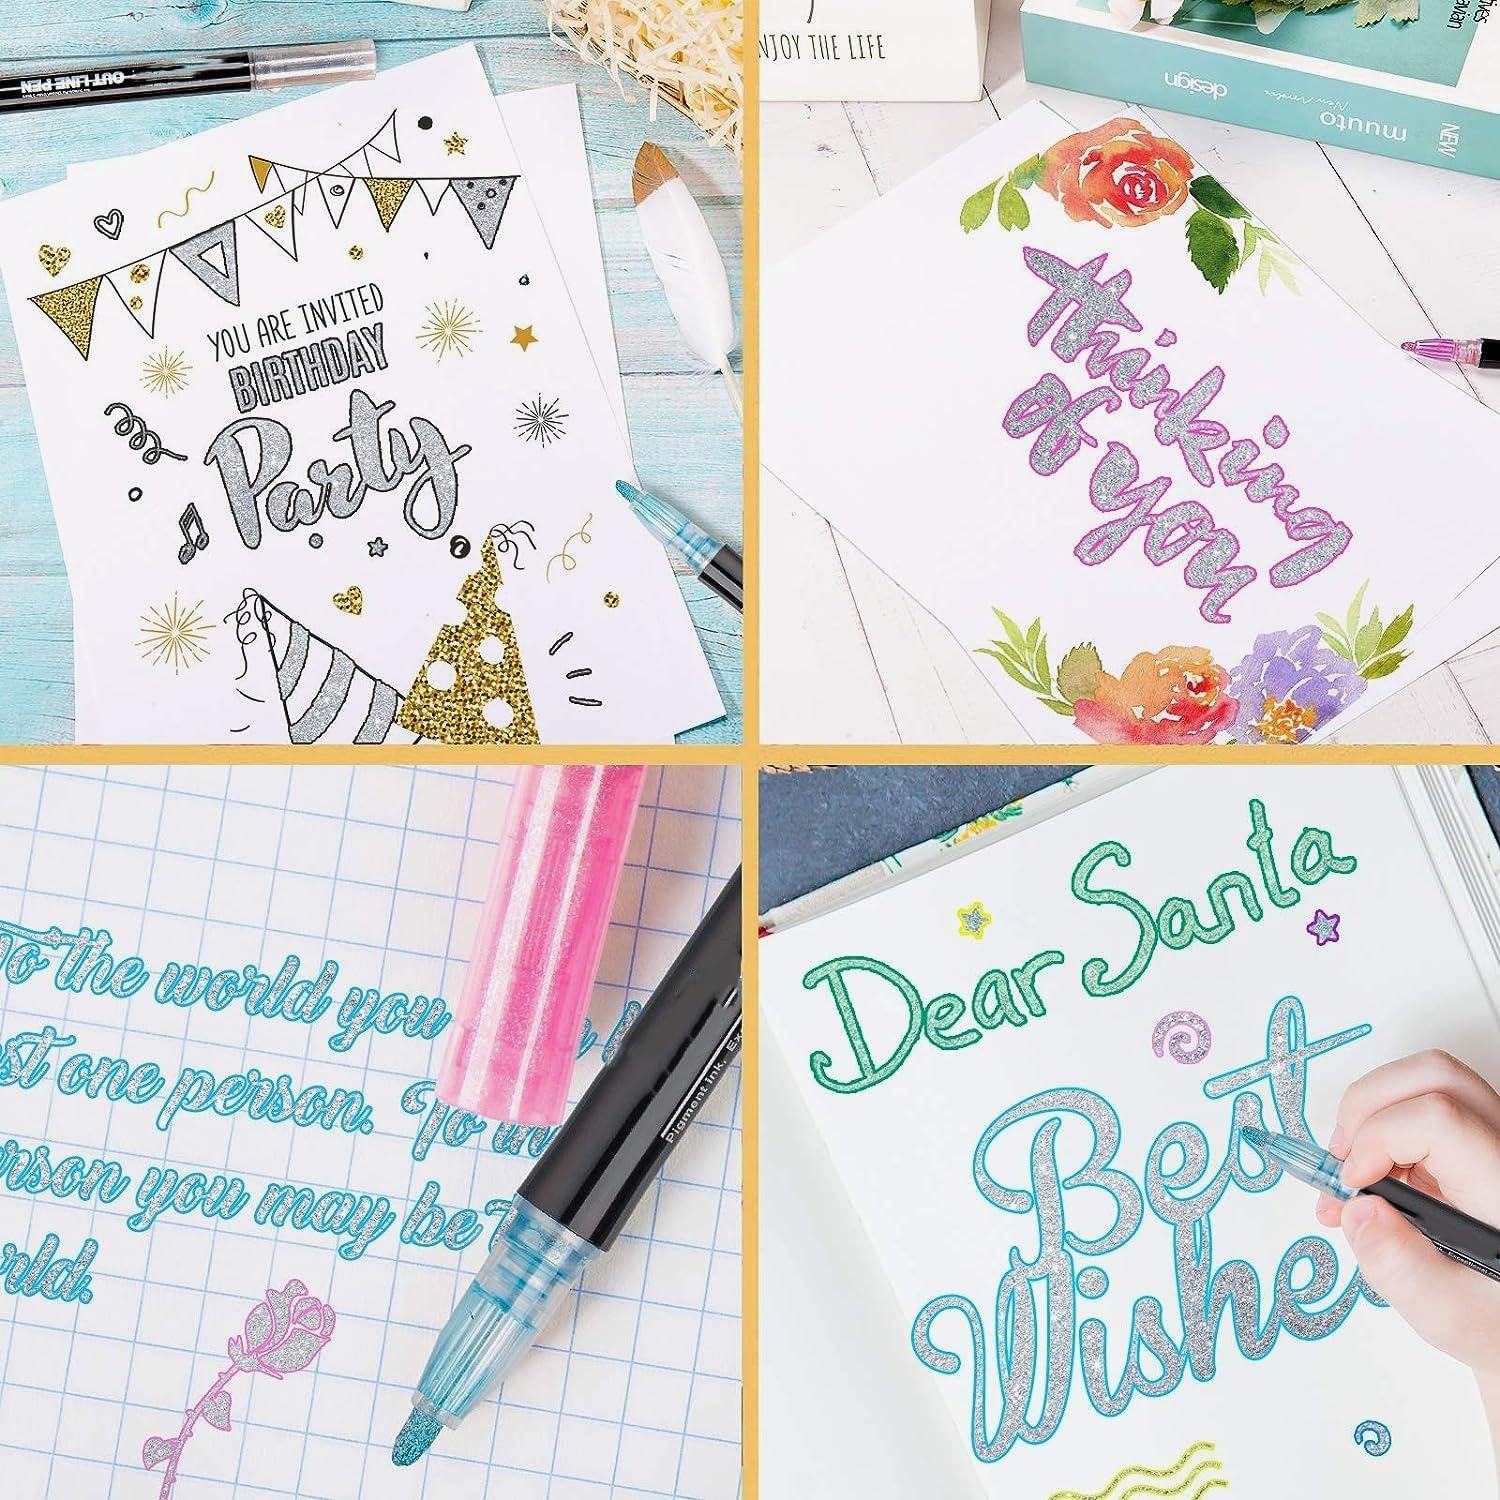 OUT LINE PEN
YOU ARE INVITED
BIRTHDAY
Party
NJOY THE LIFE
design
New Number
muuto
NEW
thinking
of you
To the world you
st one person. To th
rson you may be
rld.
Pigment ink, Ex
Dear Santa
Best
Wishe